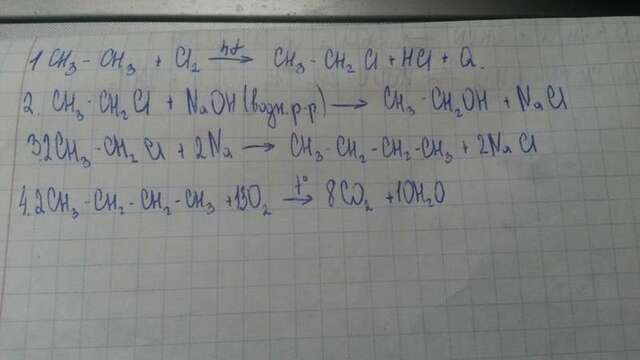 1 CH₃-CH₃ + Cl₂ hf→ CH₃-CH₂Cl + HCl + Q.
2. CH₃-CH₂Cl + NaOH (водн. р-р) → CH₃-CH₂OH + NaCl
3. 2CH₃-CH₂Cl + 2Na → CH₃-CH₂-CH₂-CH₃ + 2NaCl
4. 2CH₃-CH₂-CH₂-CH₃ + 13O₂ t°→ 8CO₂ + 10H₂O